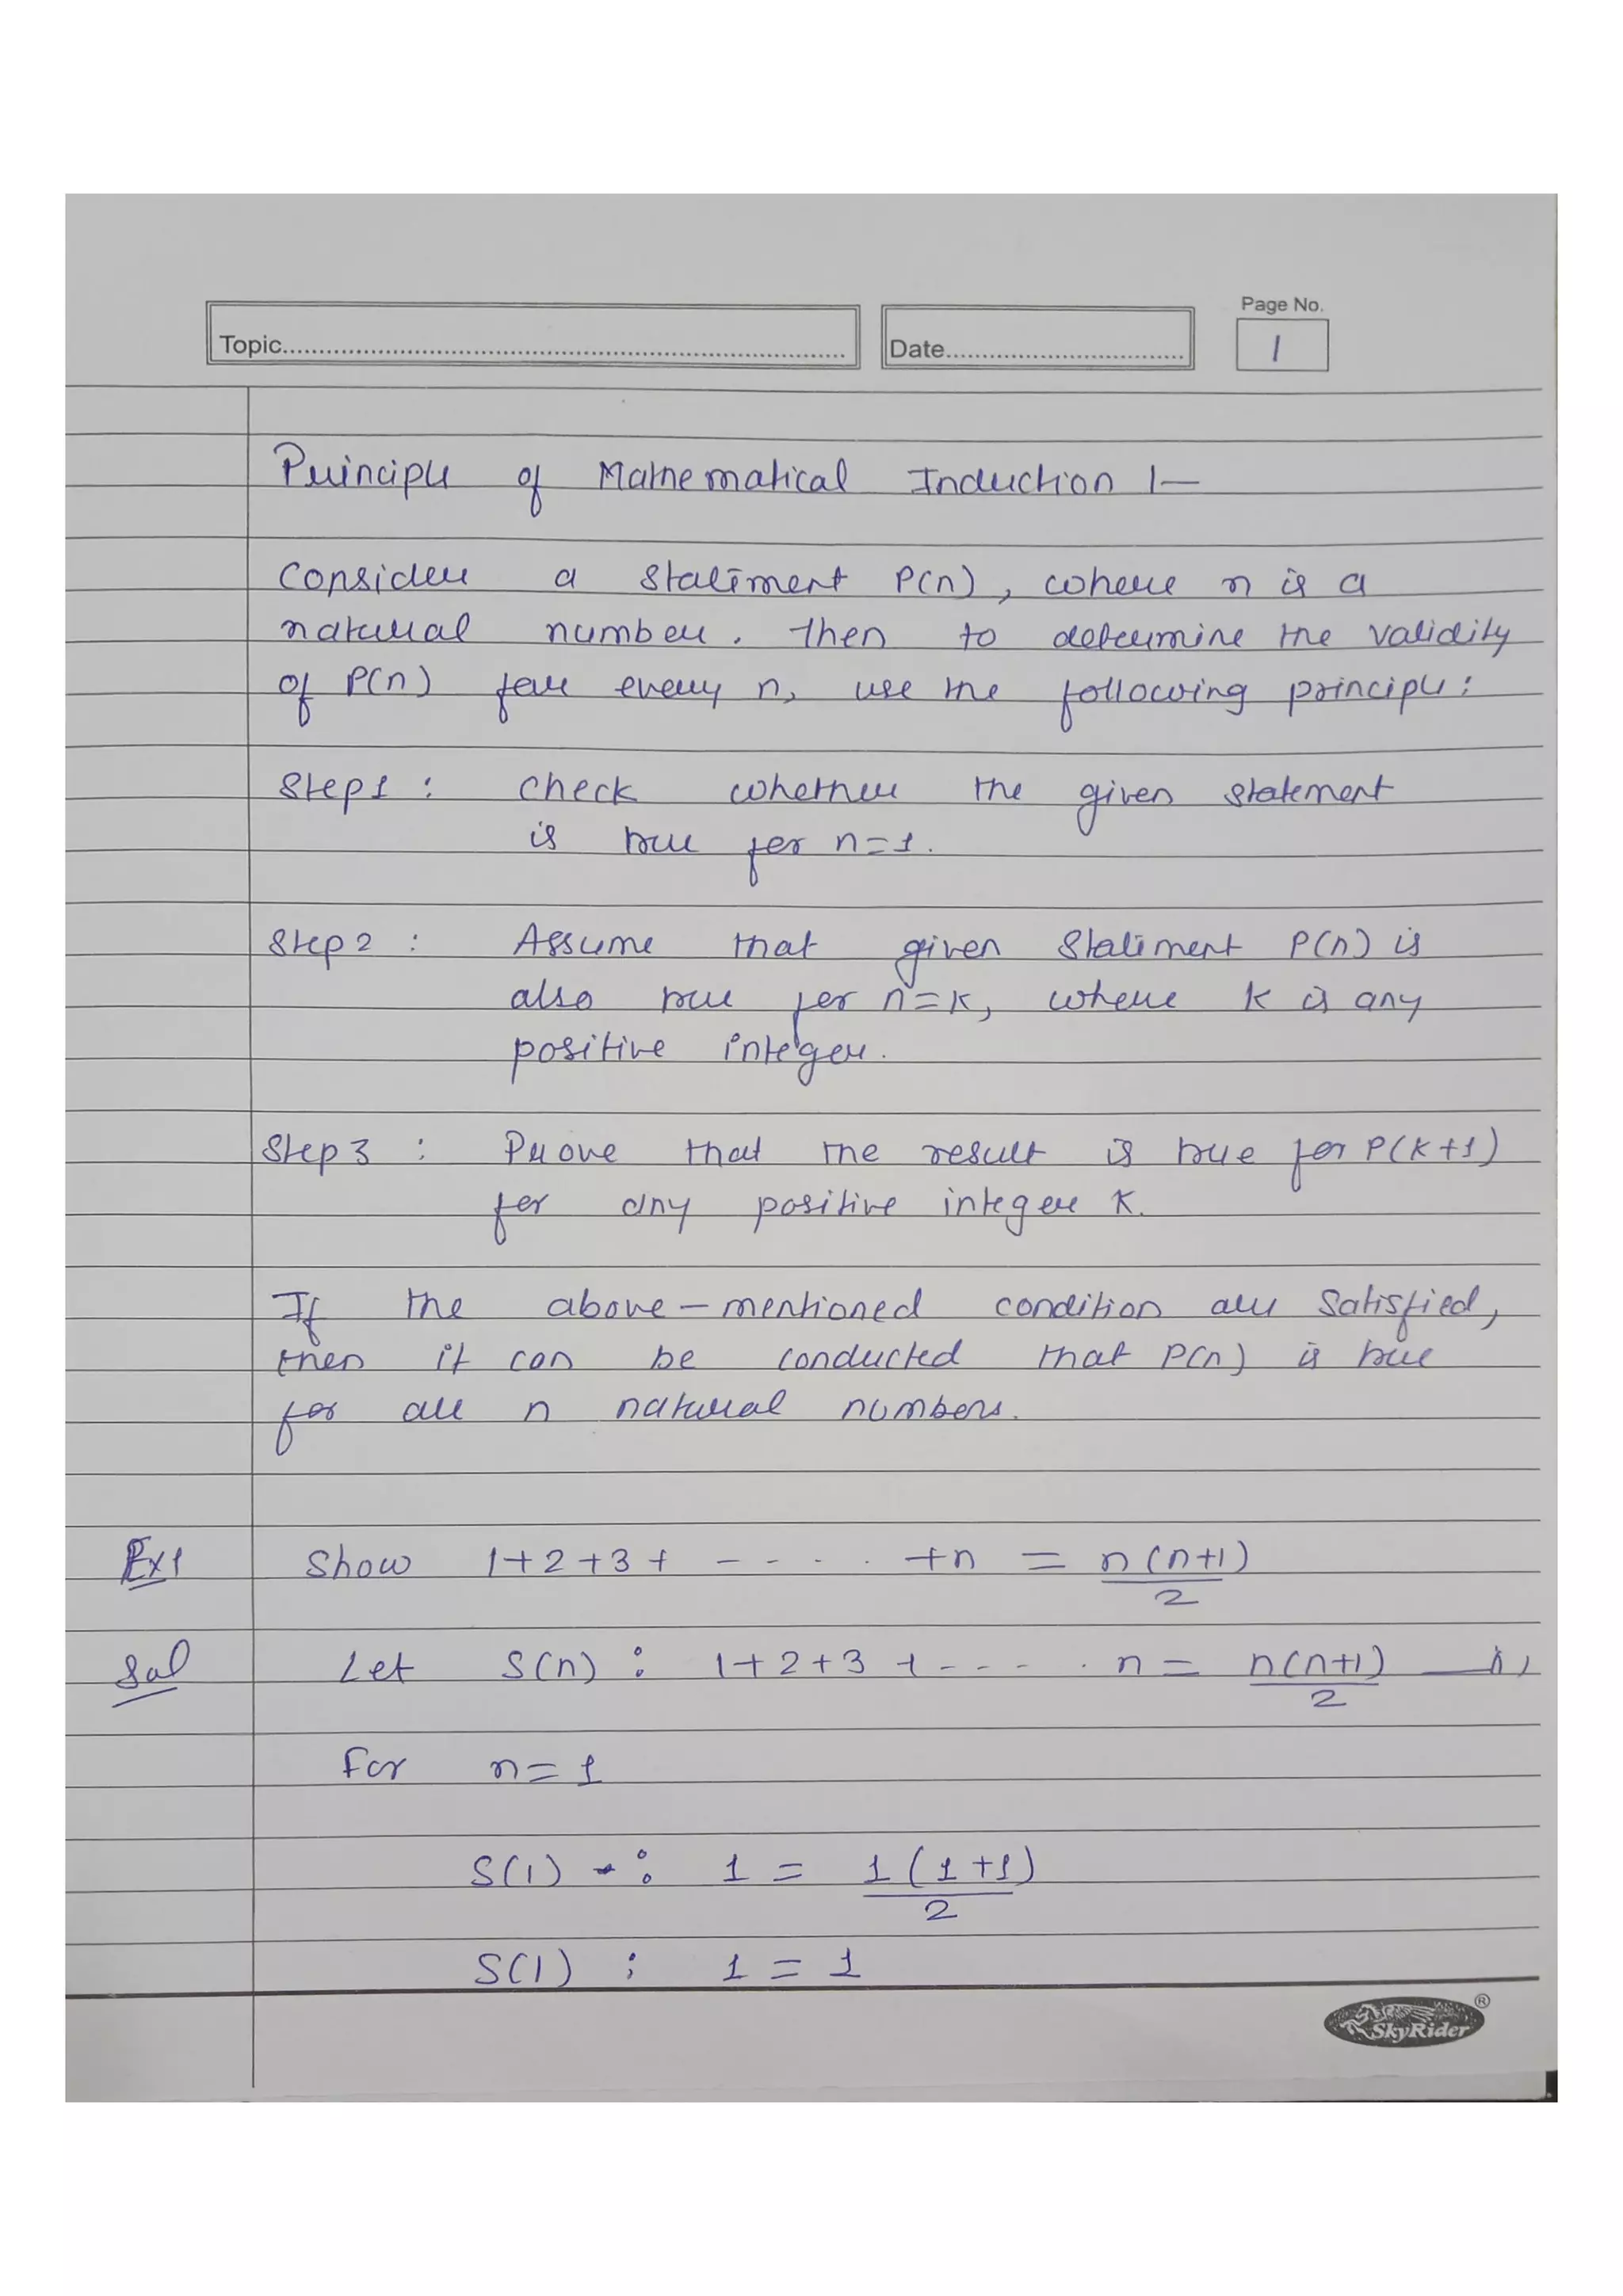 Page No.
Topic........................ Date........................ 1
Principle of Mathematical Induction :-
Consider a statement P(n), where n is a
natural number. Then to determine the validity
of P(n) for every n, use the following principle :
Step1 : Check whether the given statement
is true for n=1.
Step 2 : Assume that given Statement P(n) is
also true for n=k, where k is any
positive integer.
Step 3 : Prove that the result is true for P(k+1)
for any positive integer k.
If the above-mentioned condition are satisfied,
then it can be conducted that P(n) is true
for all n natural numbers.
Ex1 Show 1+2+3+ - - . . +n = n(n+1)
2
Sol Let S(n) : 1+2+3+ - - - . n = n(n+1) — (i)
2
For n=1
S(1) - : 1 = 1(1+1)
2
S(1) : 1 = 1
SkyRider ®